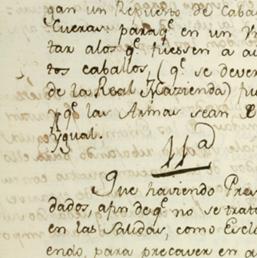 gan un Repuesto de Caba
Cueras paraq.e en un
tar alos q.e fuessen a
tos caballos, q.e se dever
de la Real Hazienda) fu
y q.e las Armas sean
Ygual.
11ª
Que haviendo
dados, afin de q.e no se trat
en las Salidas, como
endo, para precaver en